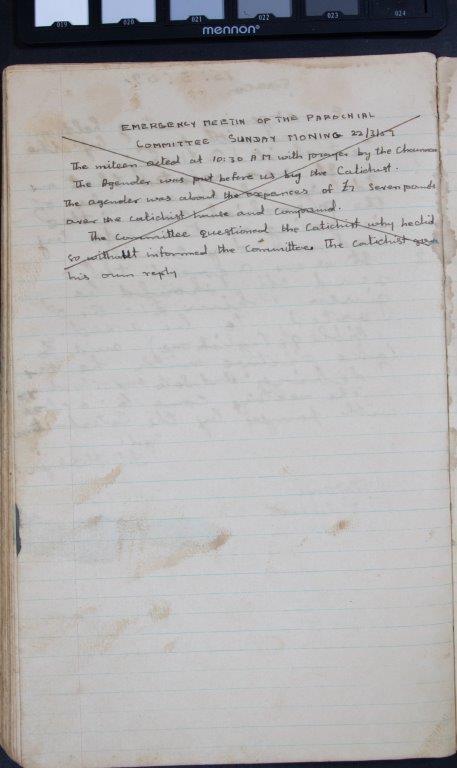 019 020 021 022 023 024
mennon®
EMERGENCY MEETIN OF THE PAROCHIAL
COMMITTEE SUNDAY MONING 22/3/59
The miteen acted at 10:30 A.M with prayer by the Chairman
The Agender was put before us by the Catichist.
The agender was about the expances of £7 seven pounds
over the catichist house and Compound.
The Committee questioned the Catichist why he did
so without informed the Committee. The Catichist gave
his own reply